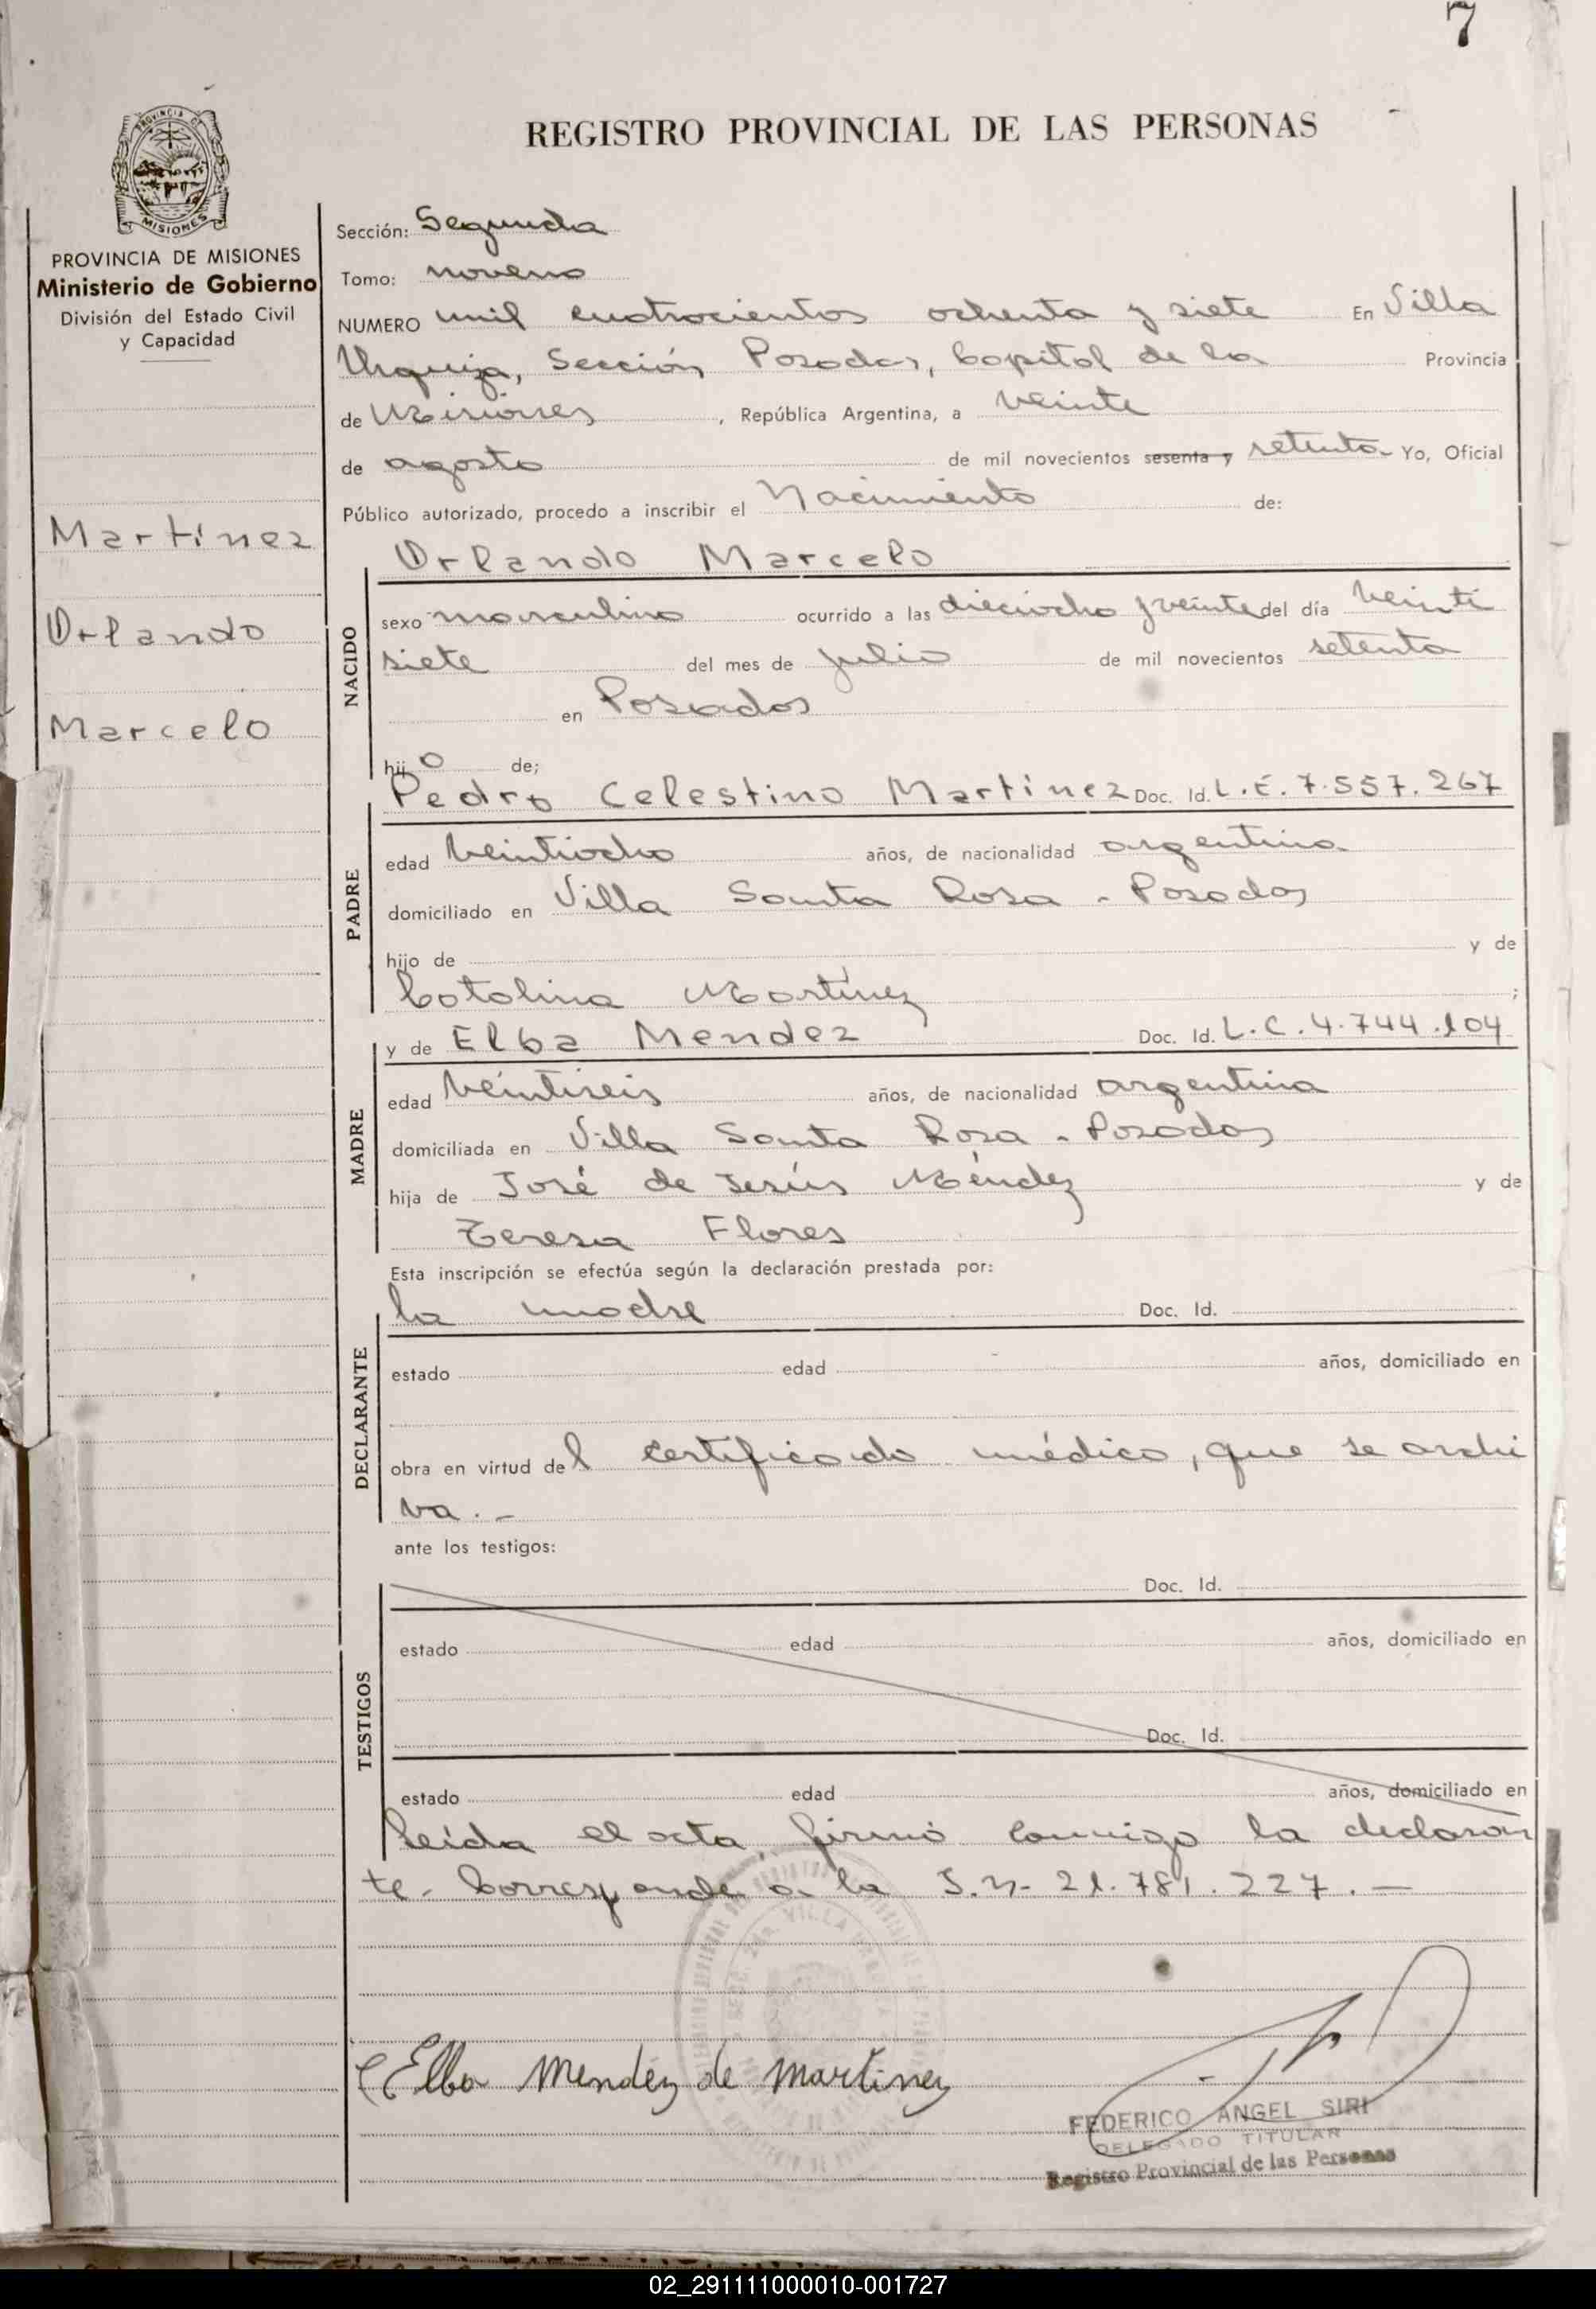 7
REGISTRO PROVINCIAL DE LAS PERSONAS
PROVINCIA DE
MISIONES
PROVINCIA DE MISIONES
Ministerio de Gobierno
División del Estado Civil
y Capacidad
Martínez
Orlando
Marcelo
Sección: Segunda
Tomo: noveno
NUMERO mil cuatrocientos ochenta y siete En Villa
Urquiza, Sección Posadas, Capital de la Provincia
de Misiones, República Argentina, a veinte
de agosto de mil novecientos sesenta y setenta- Yo, Oficial
Público autorizado, procedo a inscribir el Nacimiento de:
Orlando Marcelo
NACIDO
sexo masculino ocurrido a las dieciocho y veinte del día veinti
siete del mes de julio de mil novecientos setenta
en Posadas
hijo de;
Pedro Celestino Martínez Doc. Id. L.E. 7.557.267
PADRE
edad veintiocho años, de nacionalidad argentina
domiciliado en Villa Santa Rosa - Posadas
hijo de y de
Catalina Martínez ;
y de Elba Mendez Doc. Id. L.C. 4.744.104
MADRE
edad veintiseis años, de nacionalidad argentina
domiciliada en Villa Santa Rosa - Posadas
hija de José de Jesús Méndez y de
Teresa Flores
Esta inscripción se efectúa según la declaración prestada por:
la madre Doc. Id.
DECLARANTE
estado edad años, domiciliado en
obra en virtud del certificado médico, que se archi
va.-
ante los testigos:
Doc. Id.
TESTIGOS
estado edad años, domiciliado en
Doc. Id.
estado edad años, domiciliado en
Leída el acta, firmó conmigo la declaran
te- Corresponde a la 21.781.227.-
Elba Mendéz de Martinez
FEDERICO ANGEL SIRI
DELEGADO TITULAR
Registro Provincial de las Personas
02_291111000010-001727